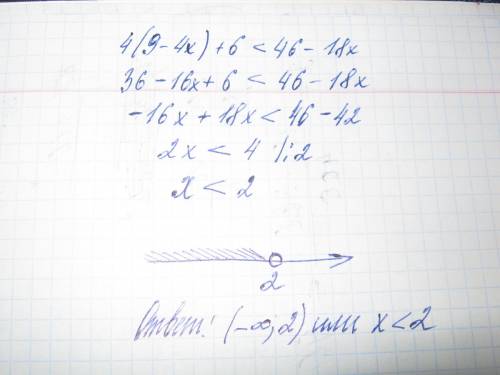 4(9-4x)+6<46-18x
36-16x+6<46-18x
-16x+18x<46-42
2x<4 |:2
x<2
2
Ответ: (-∞, 2) или x<2